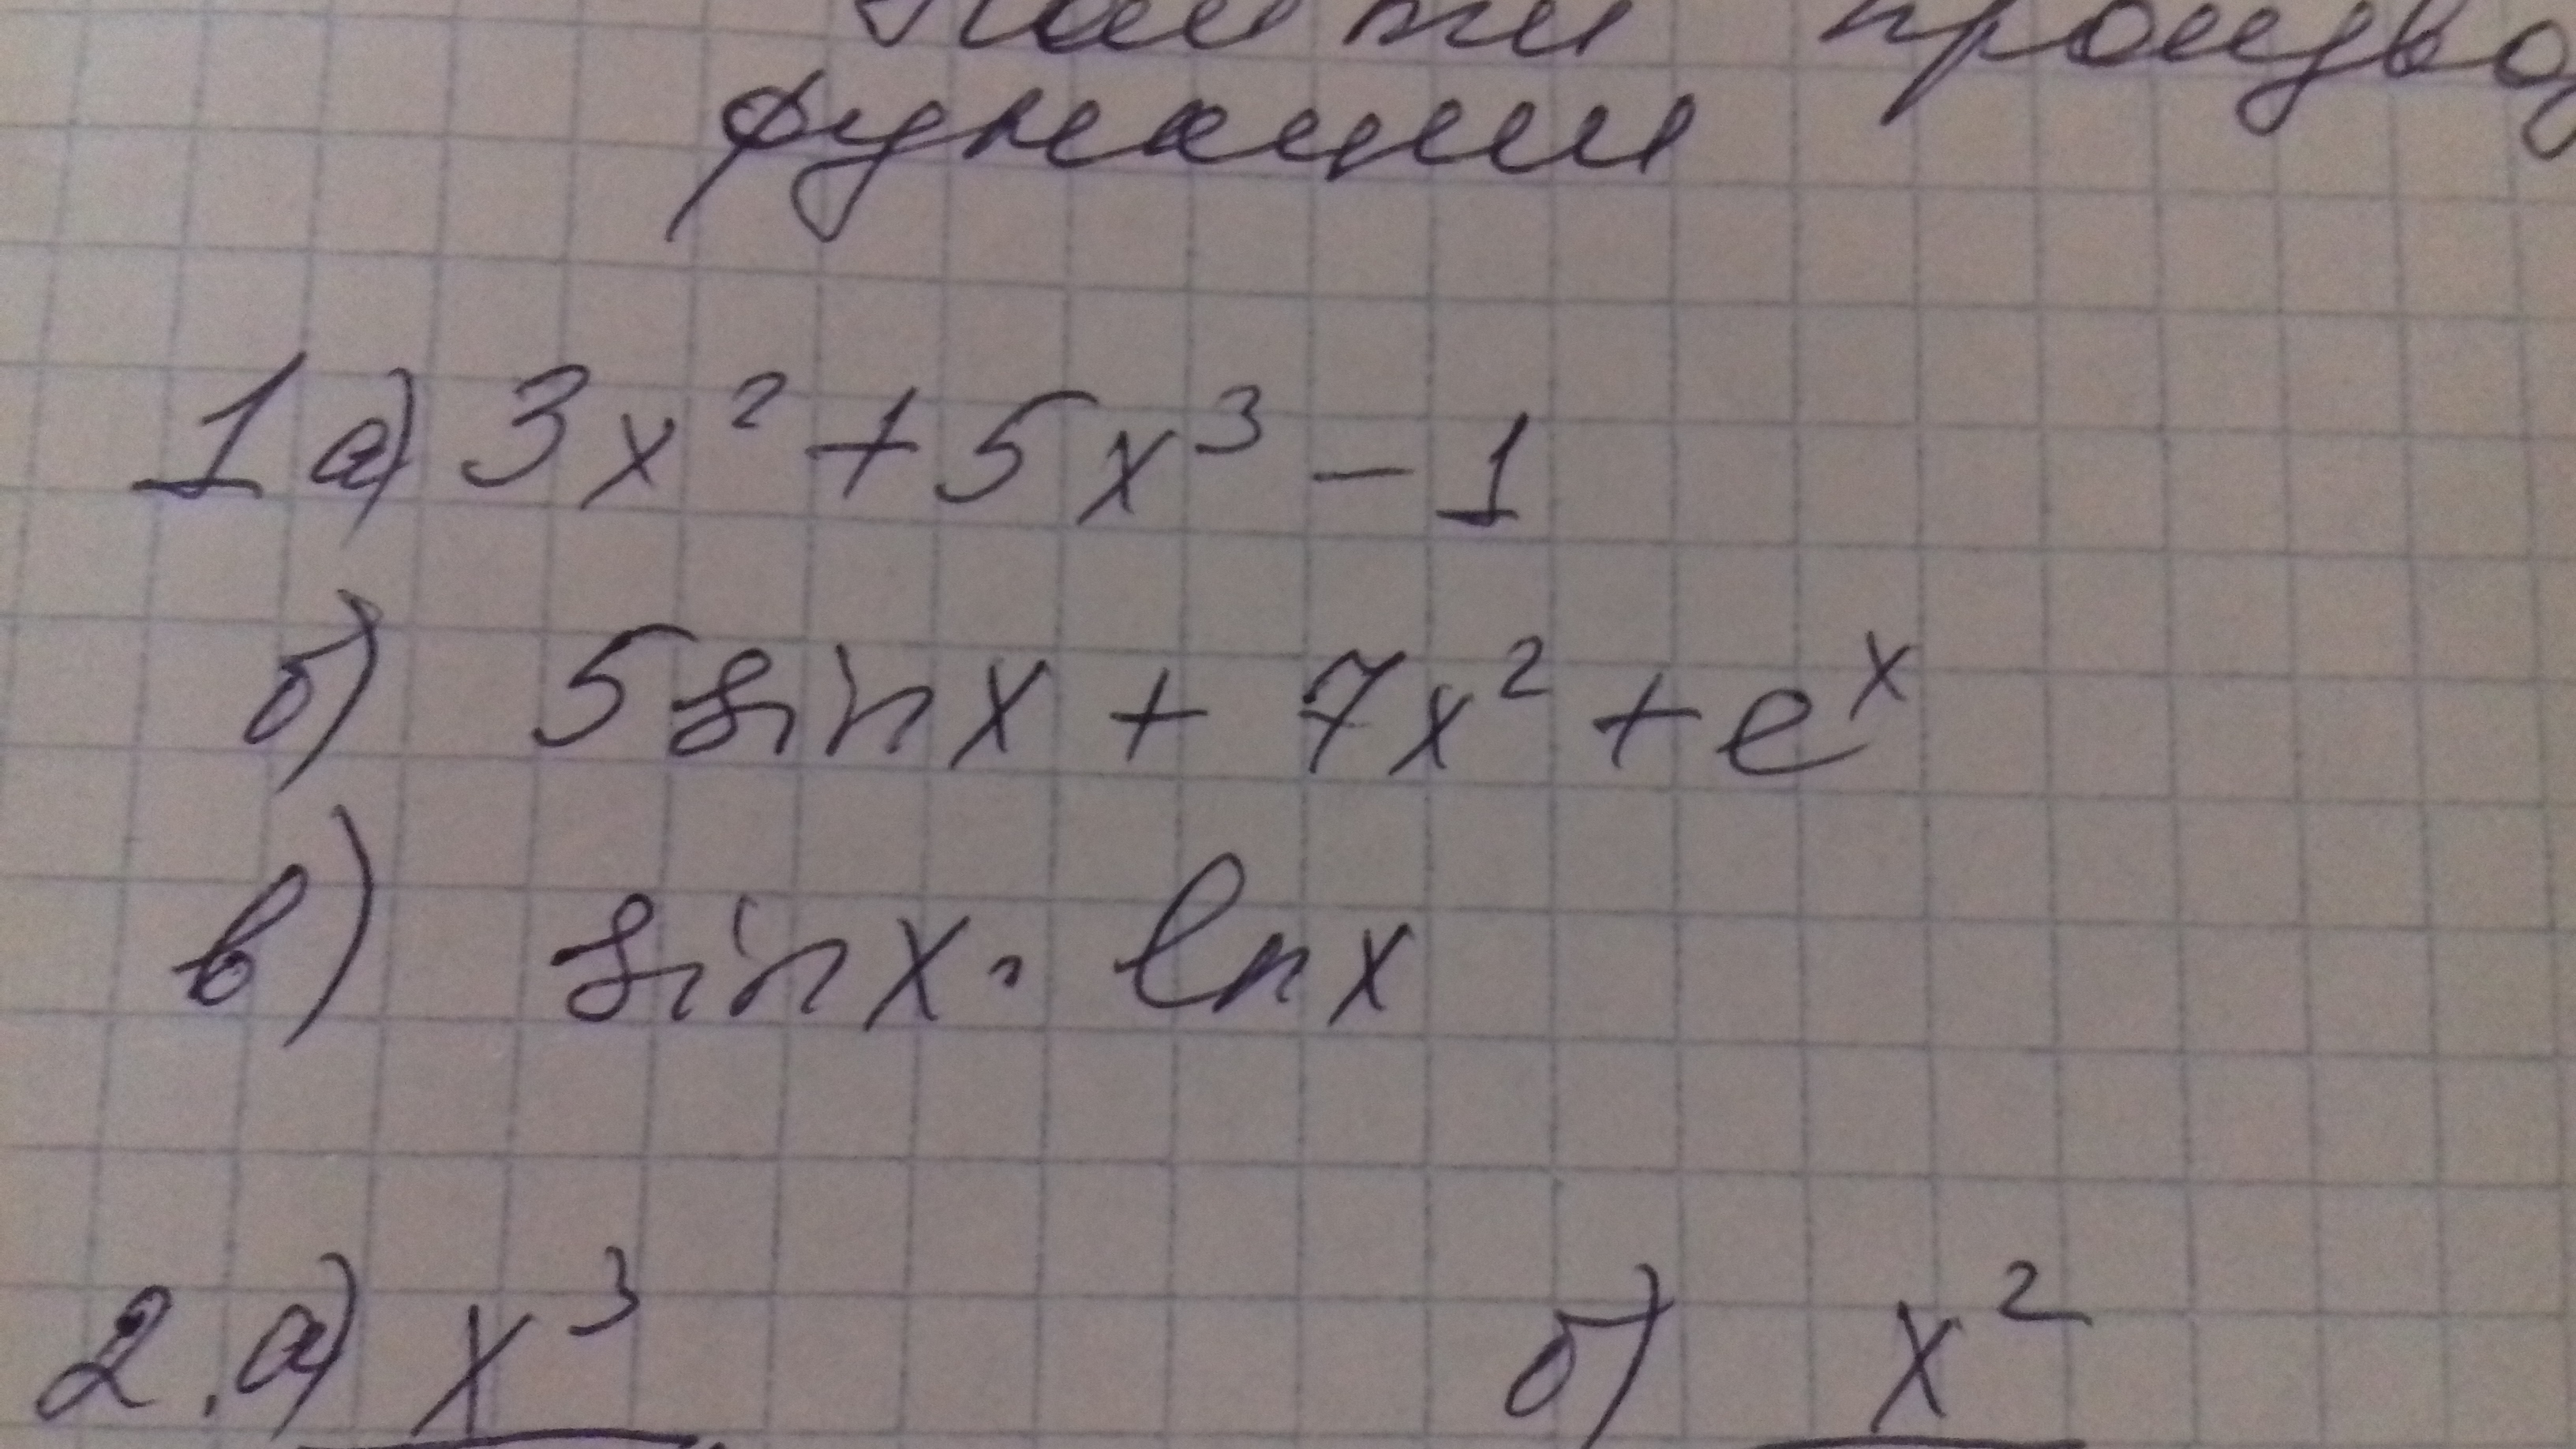 Найти произво
функции
1 а) 3x² + 5x³ - 1
б) 5 sin x + 7x² + eˣ
в) sin x · ln x
2. а) x³ б) x²